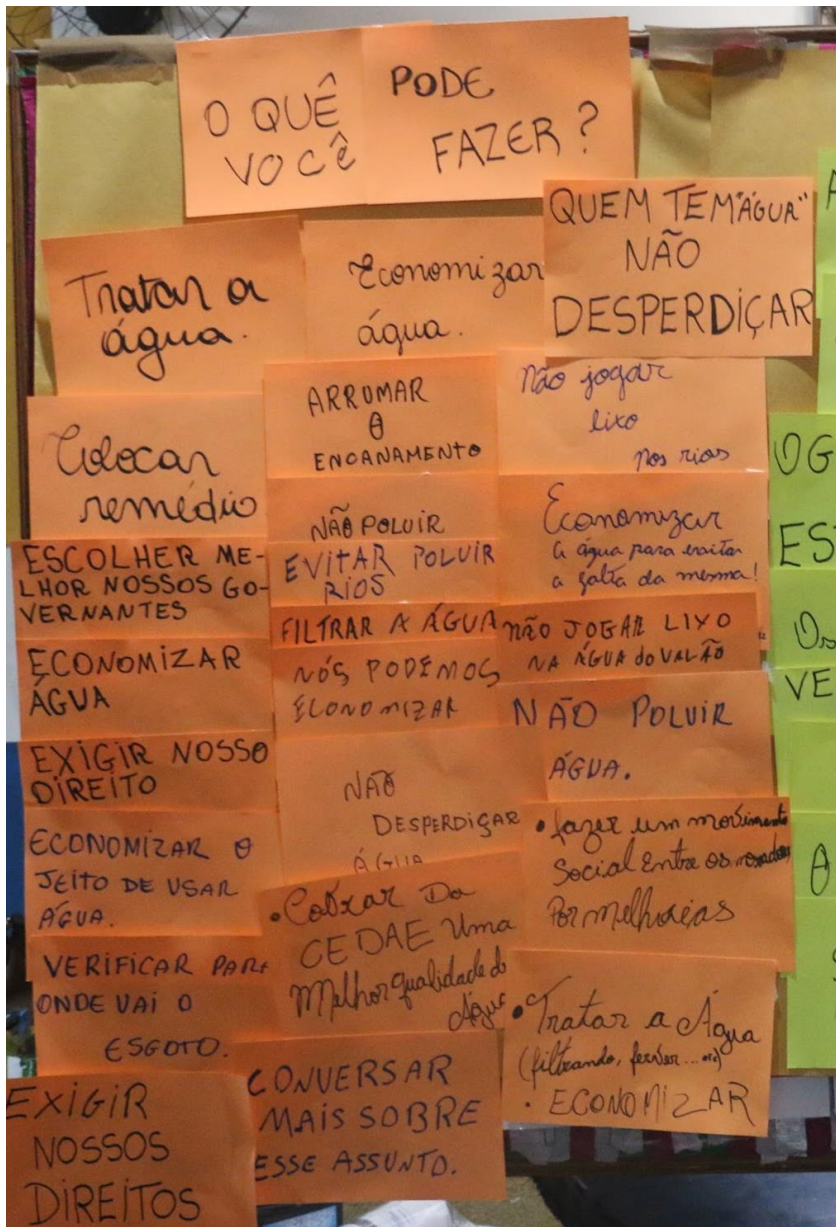 O QUÊ
VOCÊ
PODE
FAZER ?
QUEM TEM "ÁGUA"
NÃO
DESPERDIÇAR
Tratar a
água.
Economizar
água.
Colocar
remédio
ARRUMAR
O
ENCANAMENTO
Não jogar
lixo
nos rios
NÃO POLUIR
Economizar
a água para evitar
a falta da mesma!
ESCOLHER ME-
LHOR NOSSOS GO-
VERNANTES
EVITAR POLUIR
RIOS
FILTRAR A ÁGUA
NÃO JOGAR LIXO
NA ÁGUA do VALÃO
ECONOMIZAR
ÁGUA
NÓS PODEMOS
ECONOMIZAR
NÃO POLUIR
ÁGUA.
EXIGIR NOSSO
DIREITO
NÃO
DESPERDIÇAR
ÁGUA
• fazer um movimento
Social Entre os moradores
Por melhorias
ECONOMIZAR O
JEITO DE USAR
ÁGUA.
• Cobrar Da
CEDAE Uma
Melhor qualidade de
Água
VERIFICAR PARA
ONDE VAI O
ESGOTO.
• Tratar a Água
(filtrando, ferver...
• ECONOMIZAR
EXIGIR
NOSSOS
DIREITOS
CONVERSAR
MAIS SOBRE
ESSE ASSUNTO.
OG
ES
Os
VE
A